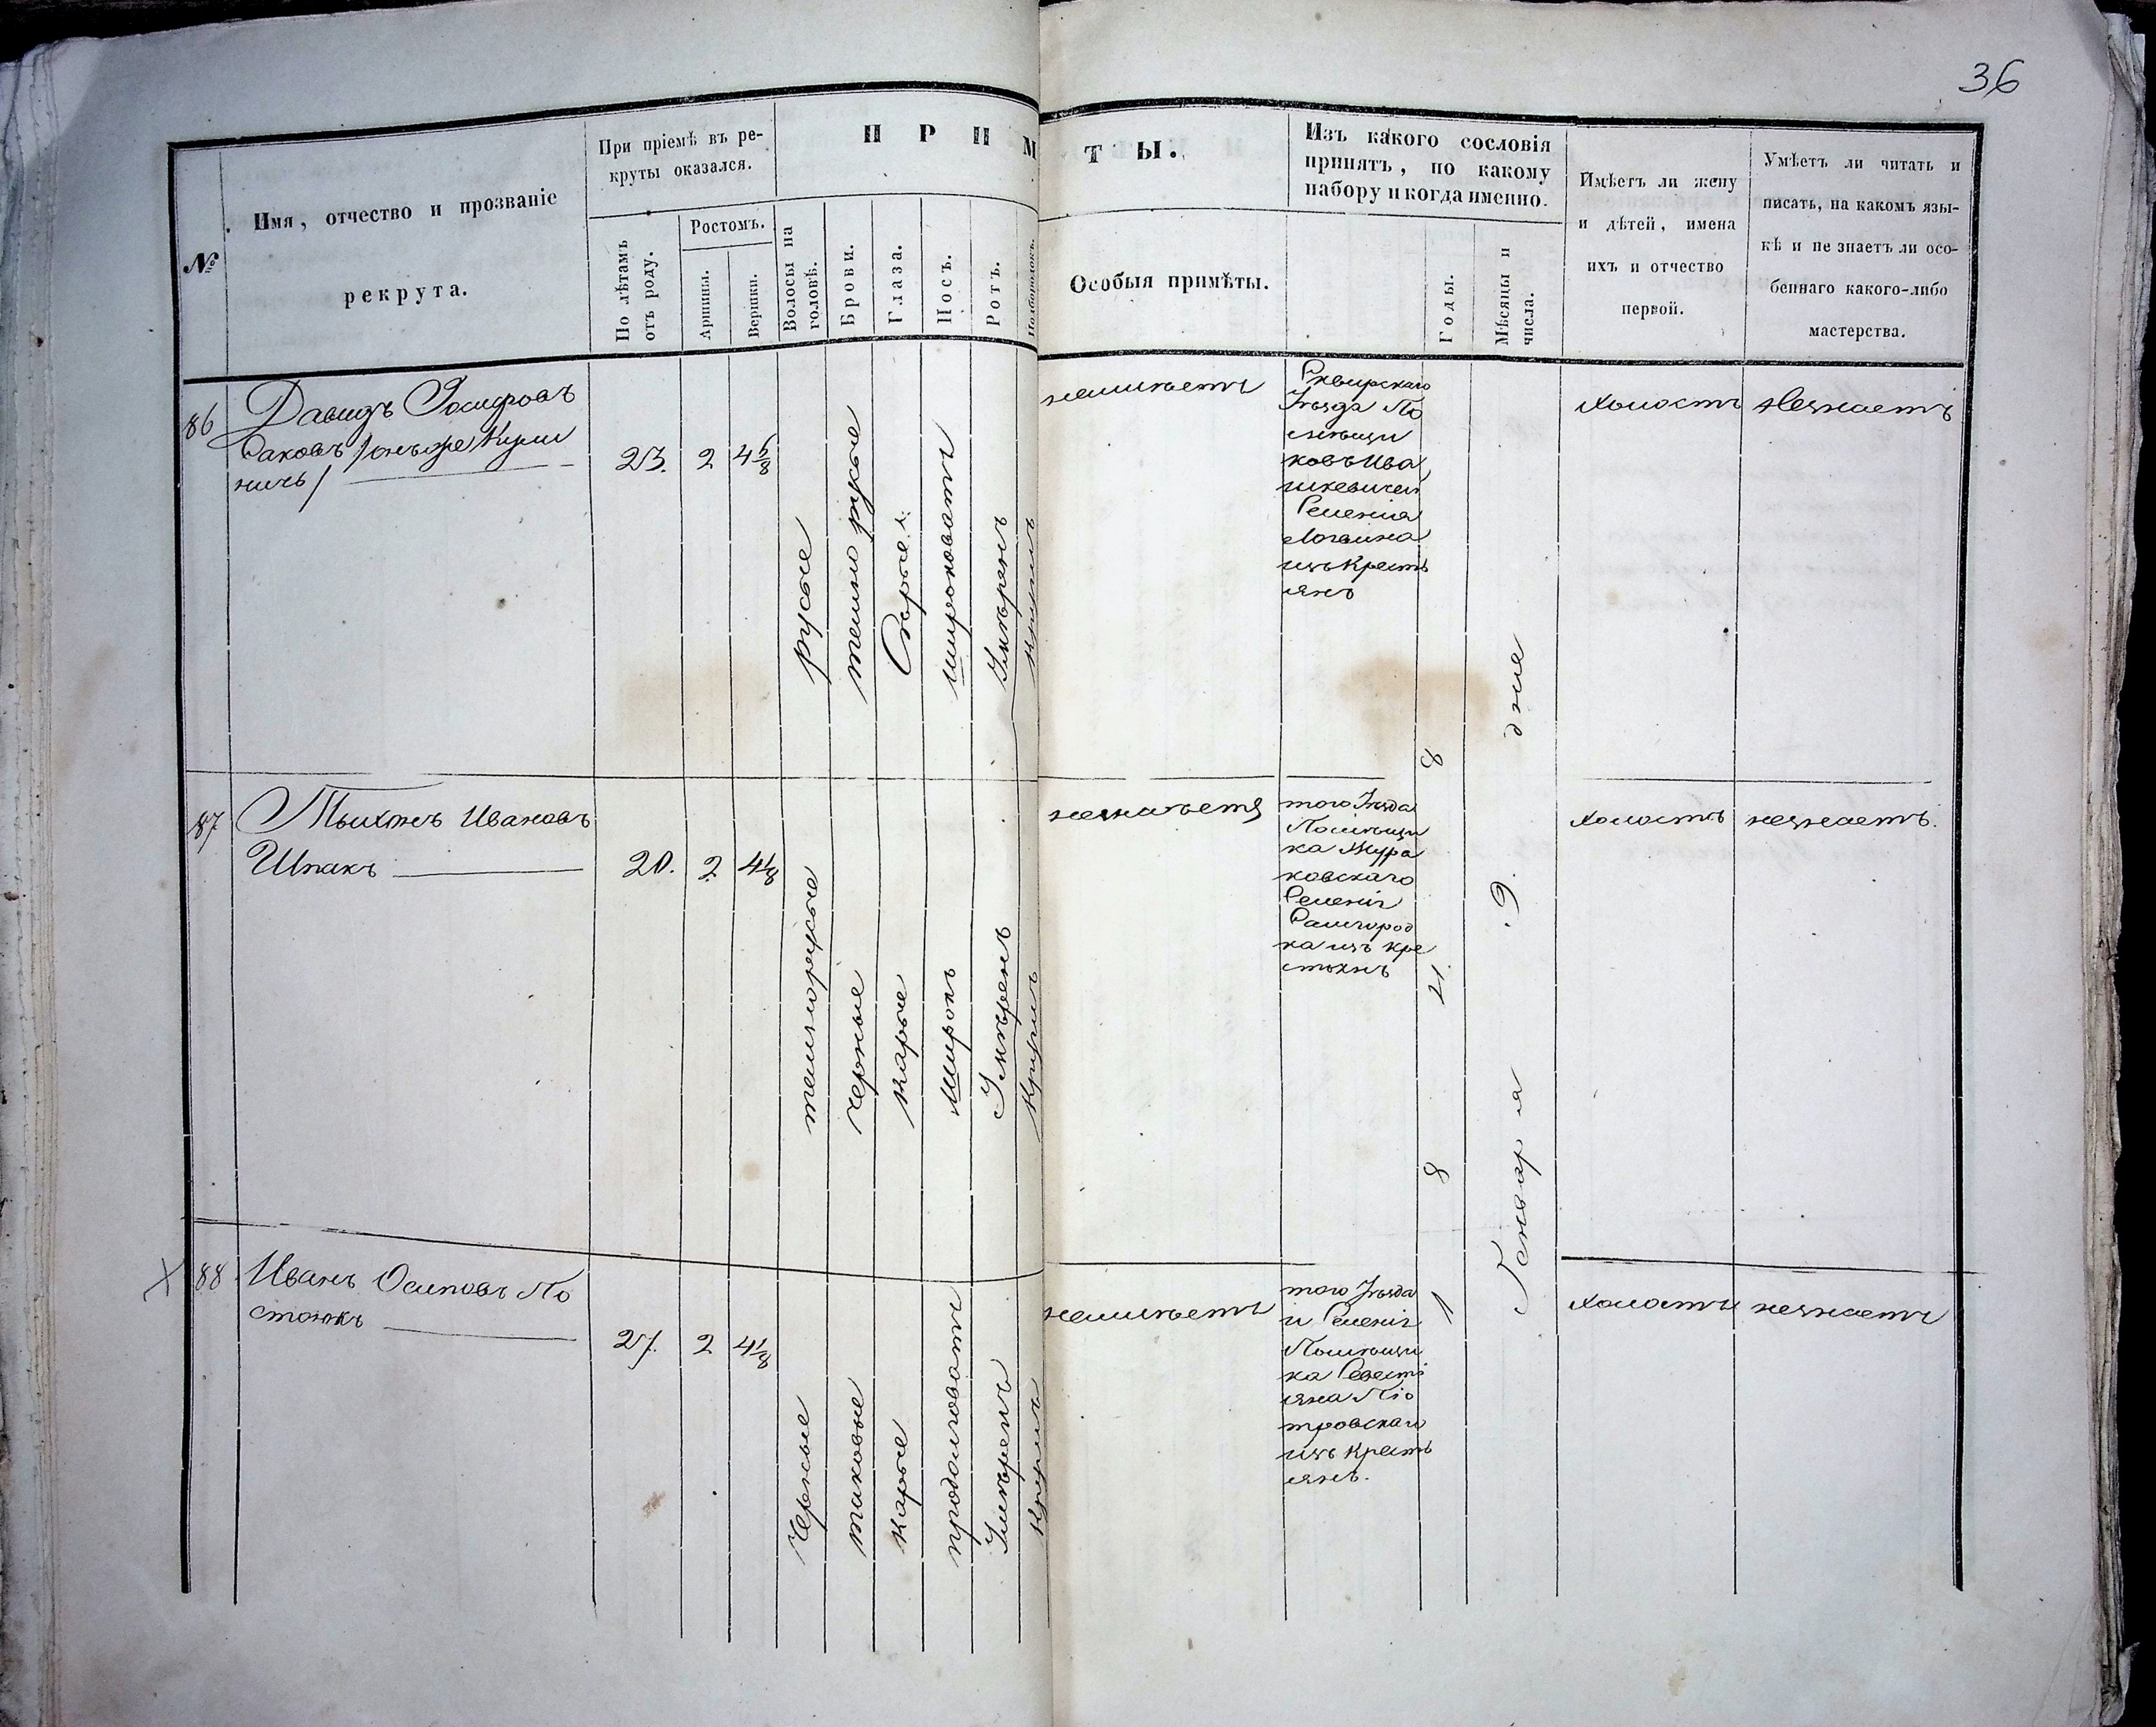 36
№
Имя, отчество и прозваніе
рекрута.
При пріемѣ въ ре-
круты оказался.
По лѣтамъ
отъ роду.
Ростомъ.
Аршины.
Вершки.
П Р И М
Т Ы.
Волосы на
головѣ.
Брови.
Глаза.
Носъ.
Ротъ.
Подбородокъ.
Особыя примѣты.
Изъ какого сословія
принятъ, по какому
набору и когда именно.
Годы.
Мѣсяцы и
числа.
Имѣетъ ли жену
и дѣтей, имена
ихъ и отчество
первой.
Умѣетъ ли читать и
писать, на какомъ язы-
кѣ и не знаетъ ли осо-
беннаго какого-либо
мастерства.
86
Давидъ Іосифовъ
Саковъ /онъ же Кули
ничъ/
23. 2 4 6/8
русые
темно русые
Сѣрые
широковатъ
Умѣренъ
Круглъ
неимѣетъ
Сквирскаго
Уѣзда По
мѣщи
ковъ Ива
шкевичей
Селенія
Логвина
изъ Крестъ
янъ
холостъ
Незнаетъ
87
Ивановъ
Шпакъ
20. 2 4 1/8
темнорусые
Черные
Карые
Широкъ
Умѣренъ
Круглъ
того Уѣзда
Помѣщи
ка Жура
ковскаго
Селенія
Самгород
ка изъ кре
стьянъ
холостъ
незнаетъ.
88
Иванъ Осиповъ По
стоюкъ
27. 2 4 1/8
Черные
таковые
Карые
продолговатъ
Умѣренъ
Круглъ
неимѣетъ
того Уѣзда
и Селенія
Помѣщи
ка Севасті
яна Піо
тровскаго
изъ Крестъ
янъ.
1 8 21 8
Генваря 9. дня
холостъ
незнаетъ